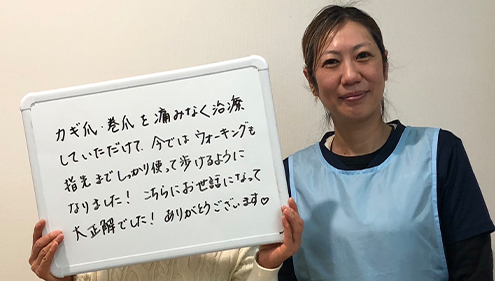 カギ爪・巻爪を痛みなく治療
していただけて、今ではウォーキングも
指先までしっかり使って歩けるように
なりました! こちらにお世話になって
大正解でした! ありがとうございます♡